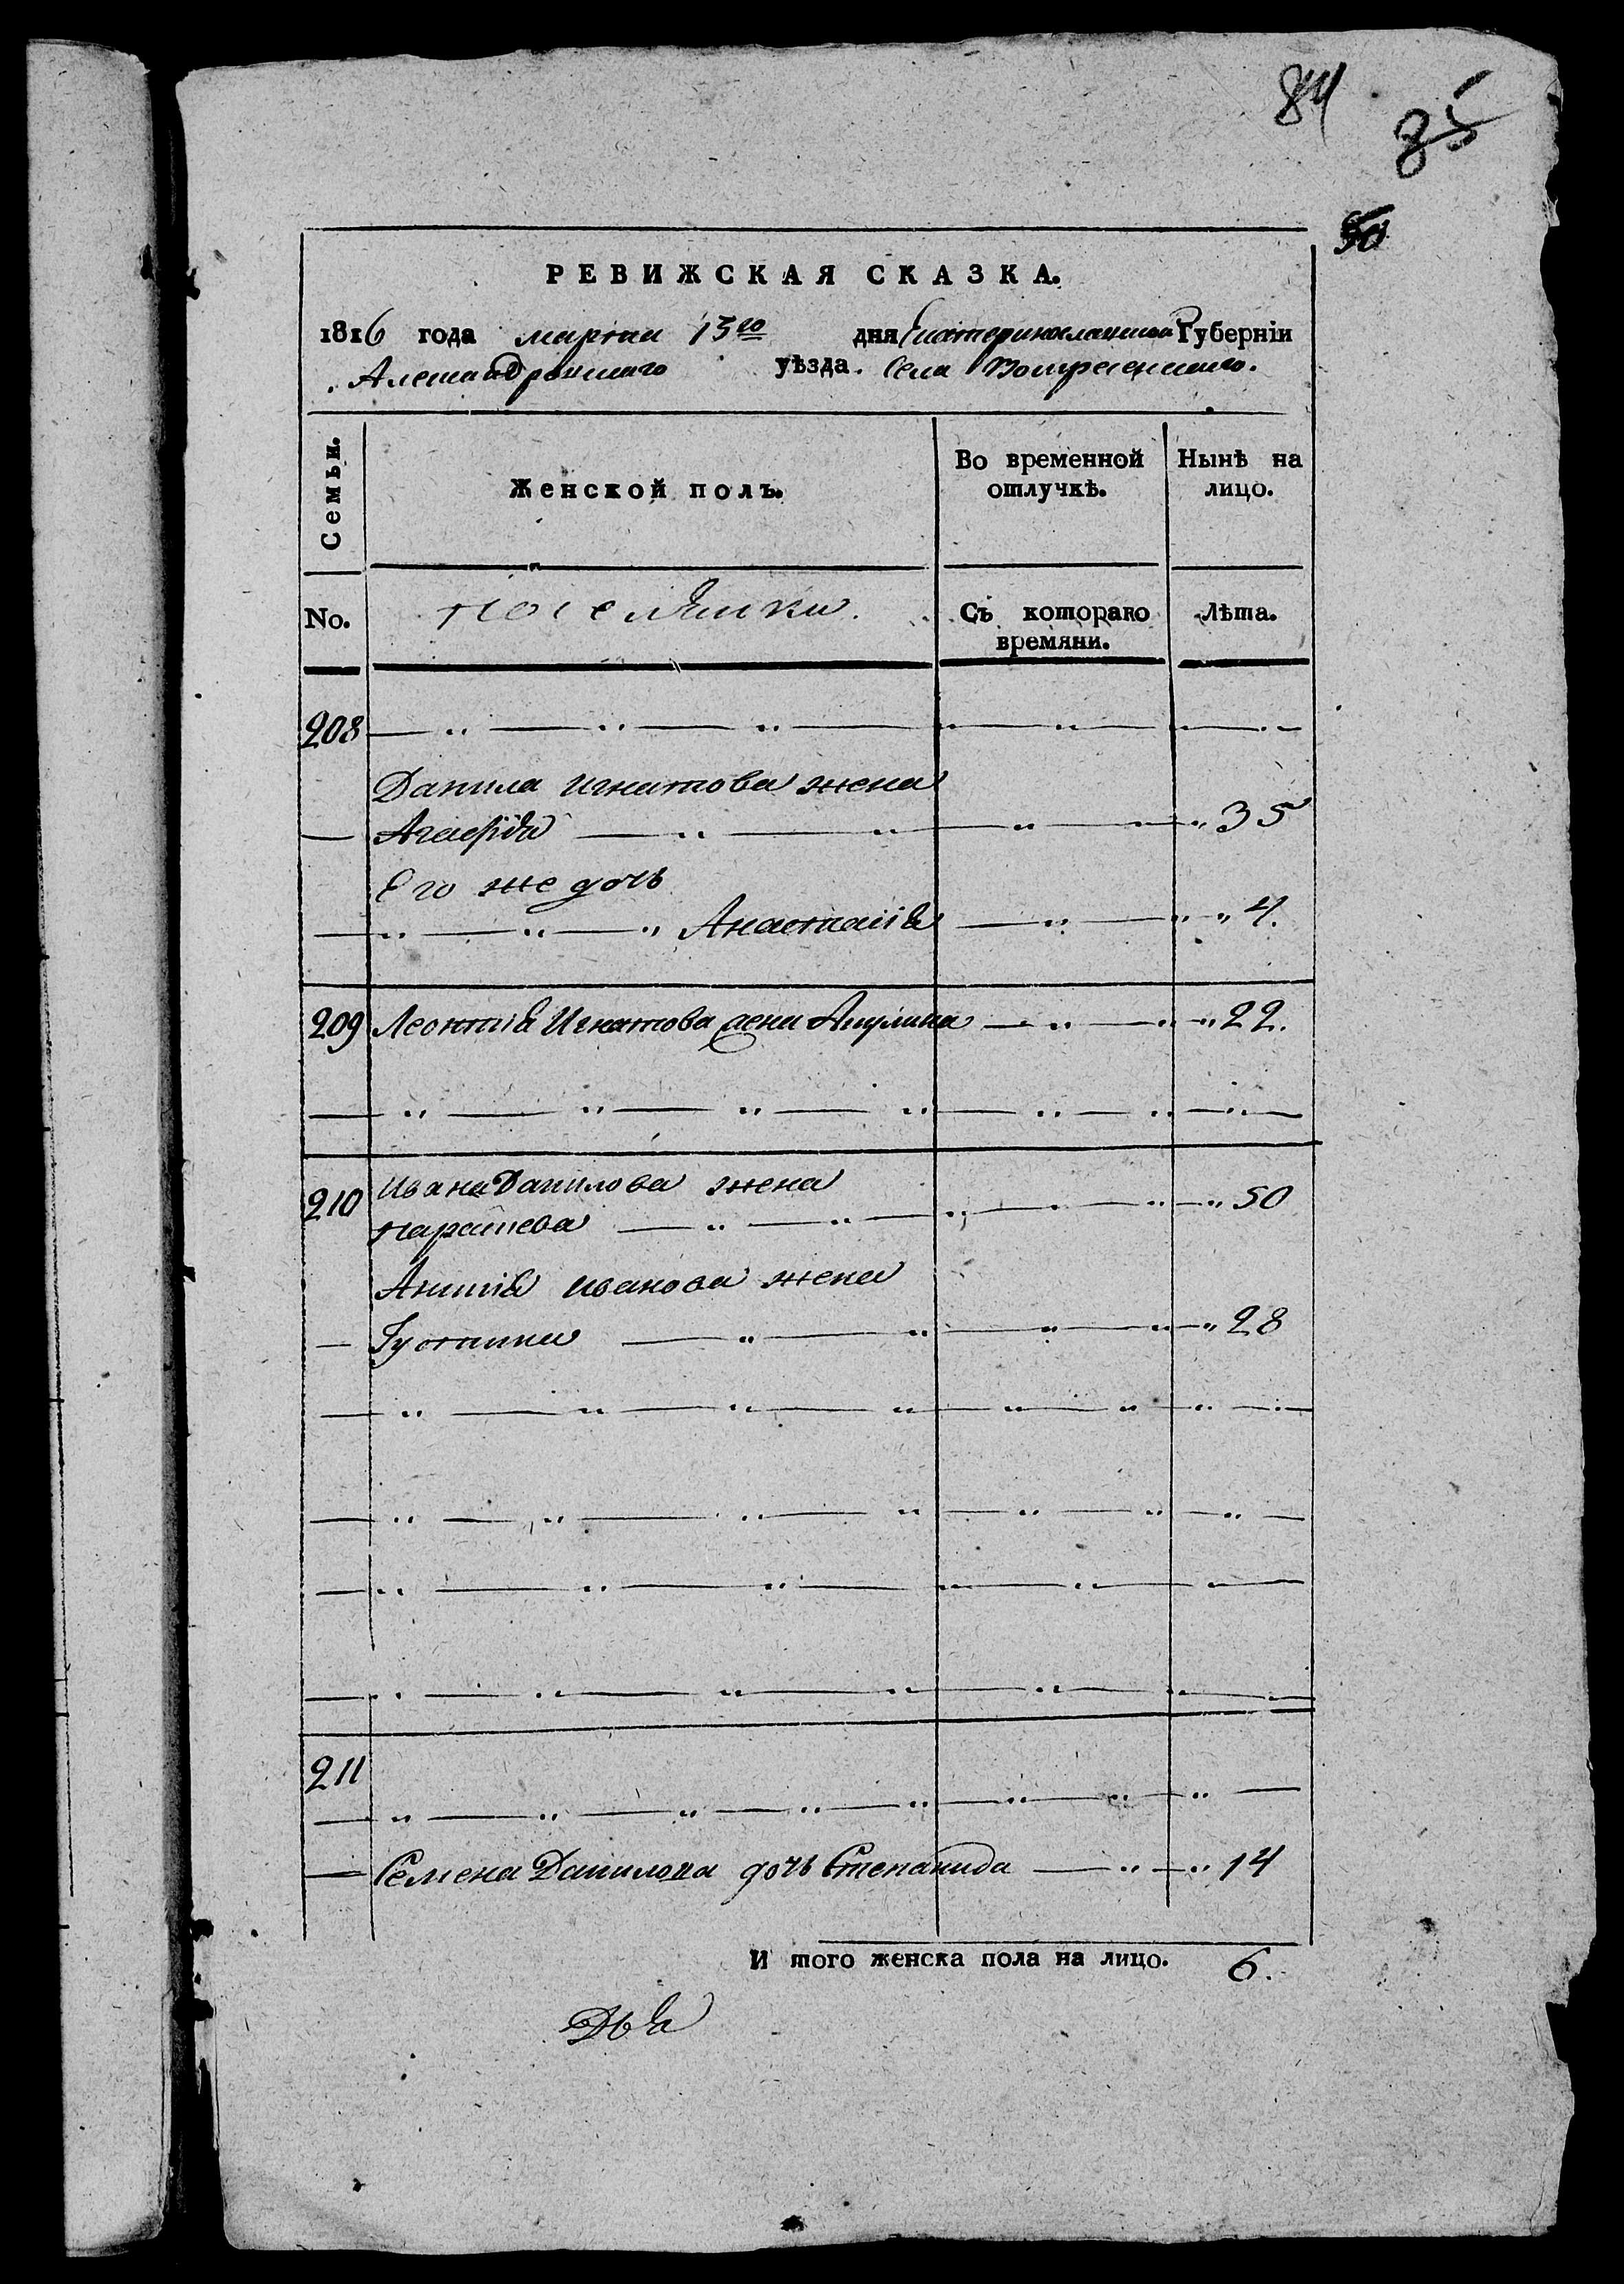 84
85
50
РЕВИЖСКАЯ СКАЗКА.
1816 года марта 13го дня Екатеринославской Губерніи
Александровскаго уѣзда. Села Воскресенскаго.
Семьи. Женской полъ. Во временной отлучкѣ. Нынѣ на лицо.
No. Поселянки. Съ котораго времяни. Лѣта.
208
Данила Игнатова жена
Агафія 35
Его же дочь
Анастасія 4.
209 Леонтія Игнатова жена Акулина 22.
210 Ивана Данилова жена
Параскева 50
Анисія Иванова жена
Іустина 28
211
Семена Данилова дочь Степанида 14
И того женска пола на лицо. 6.